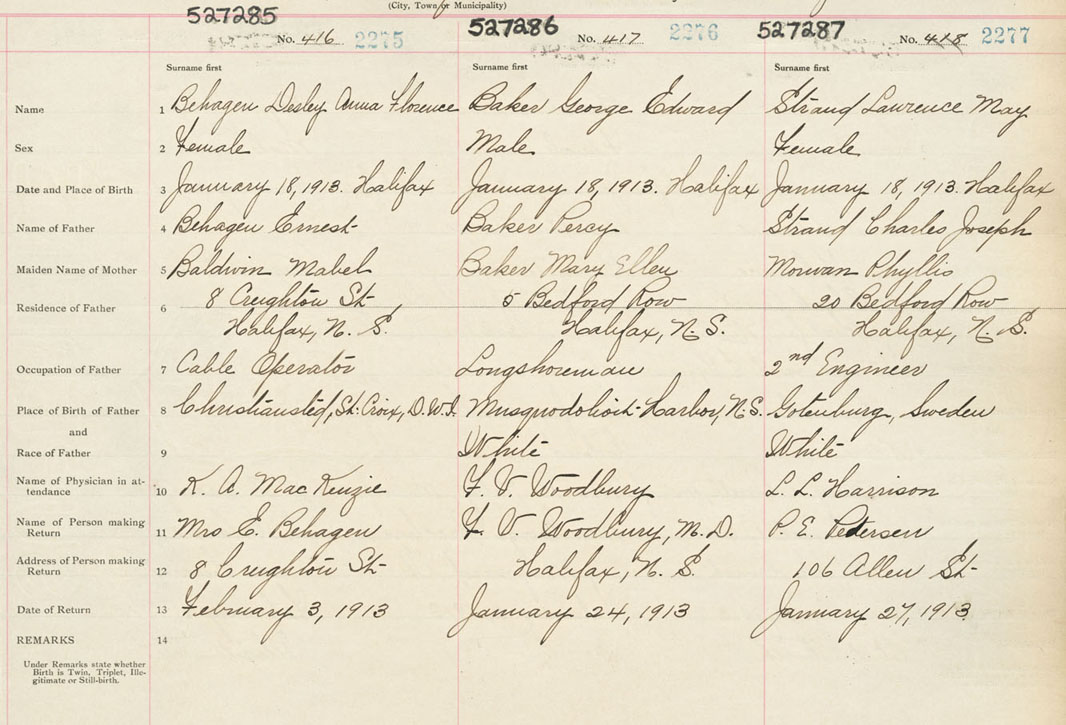 (City, Town or Municipality)
527285 527286 527287
No. 416 2275 No. 417 2276 No. 418 2277
Surname first Surname first Surname first
Name 1 Behagen Desley Anna Florence Baker George Edward Strand Lawrence May
Sex 2 Female Male Female
Date and Place of Birth 3 January 18, 1913. Halifax January 18, 1913. Halifax January 18, 1913. Halifax
Name of Father 4 Behagen Ernest Baker Percy Strand Charles Joseph
Maiden Name of Mother 5 Baldwin Mabel Baker Mary Ellen Phyllis
Residence of Father 6 8 Creighton St 5 Bedford Row 20 Bedford Row
Halifax, N. S. Halifax, N. S. Halifax, N. S.
Occupation of Father 7 Cable Operator Longshoreman 2nd Engineer
Place of Birth of Father 8 Christiansted, St. Croix, D. W. I. Musquodoboit Harbor, N. S. Gotenburg, Sweden
and
Race of Father 9 White White
Name of Physician in at-
tendance 10 K. A. MacKenzie F. V. Woodbury L. L. Harrison
Name of Person making
Return 11 Mrs E. Behagen F. V. Woodbury, M. D. P. E. Pedersen
Address of Person making
Return 12 8 Creighton St Halifax, N. S. 106 Allen St
Date of Return 13 February 3, 1913 January 24, 1913 January 27, 1913
REMARKS 14
Under Remarks state whether
Birth is Twin, Triplet, Ille-
gitimate or Still-birth.